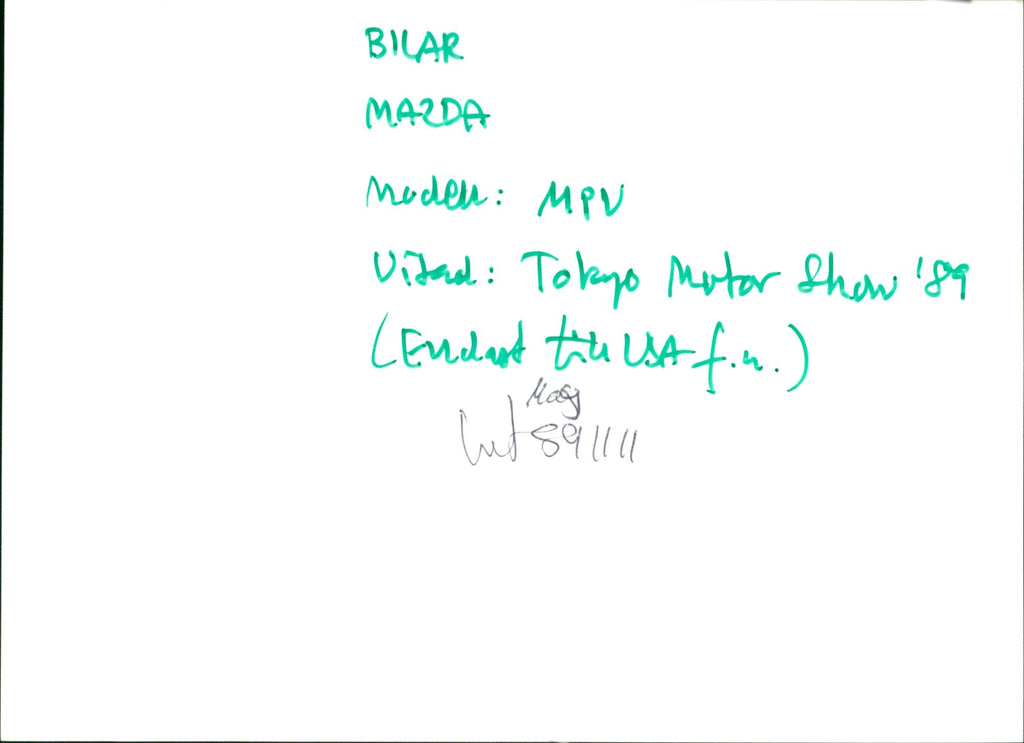 BILAR
MAZDA
Modell: MPV
Visad: Tokyo Motor Show '89
(Endast till USA f.n.)
891111